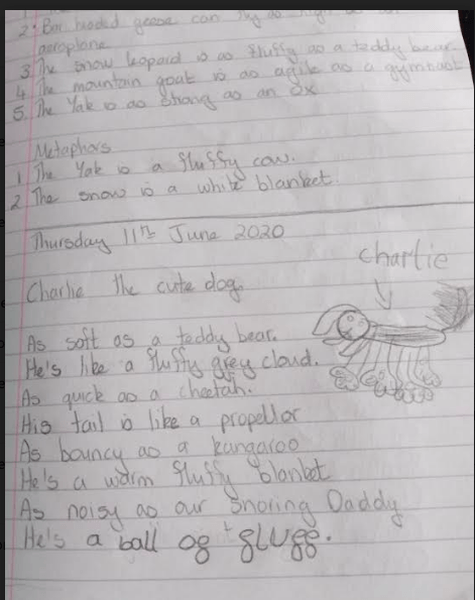 2. Bar headed geese can fly as high as
aeroplane
3 The snow leopard is as fluffy as a teddy bear.
4 The mountain goat is as agile as a gymnast
5. The Yak is as strong as an ox
Metaphors
1 The Yak is a fluffy cow.
2 The snow is a white blanket.
Thursday 11th June 2020
Charlie
Charlie the cute dog.
As soft as a teddy bear.
He's like a fluffy grey cloud.
As quick as a cheetah.
His tail is like a propellor
As bouncy as a kangaroo
He's a warm fluffy blanket
As noisy as our snoring Daddy
He's a ball og glugg.